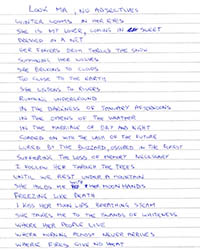 LOOK MA, NO ADJECTIVES
WINTER LOOMS IN HER EYES
SHE IS MY LOVER, COMING IN SLEET
DRESSED IN A
HER FINGERS DRUM THROUGH THE SNOW
SUMMONING HER WOLVES
SHE BELONGS TO CLOUDS
TOO CLOSE TO THE EARTH
SHE LISTENS TO RIVERS
RUNNING UNDERGROUND
IN THE DARKNESS OF JANUARY AFTERNOONS
IN THE OMENS OF THE WEATHER
IN THE MARRIAGE OF DAY AND NIGHT
LOADED ON WITH THE LACK OF THE FUTURE
LURED BY THE BLIZZARD, IN THE FORST
SUFFERING THE LOSS OF MEMORY NECESSARY
I FOLLOW HER THROUGH THE TREES
UNTIL WE REST UNDER A MOUNTAIN
SHE HOLDS ME HER MOON HANDS
FREEZING LIKE DEATH
I KISS HER MOON LIPS BREATHING STEAM
SHE TAKES ME TO THE ISLANDS OF WHITENESS
WHERE HER PEOPLE LIVE
WHERE MORNING ALMOST NEVER ARRIVES
WHERE FIRES GIVE NO HEAT